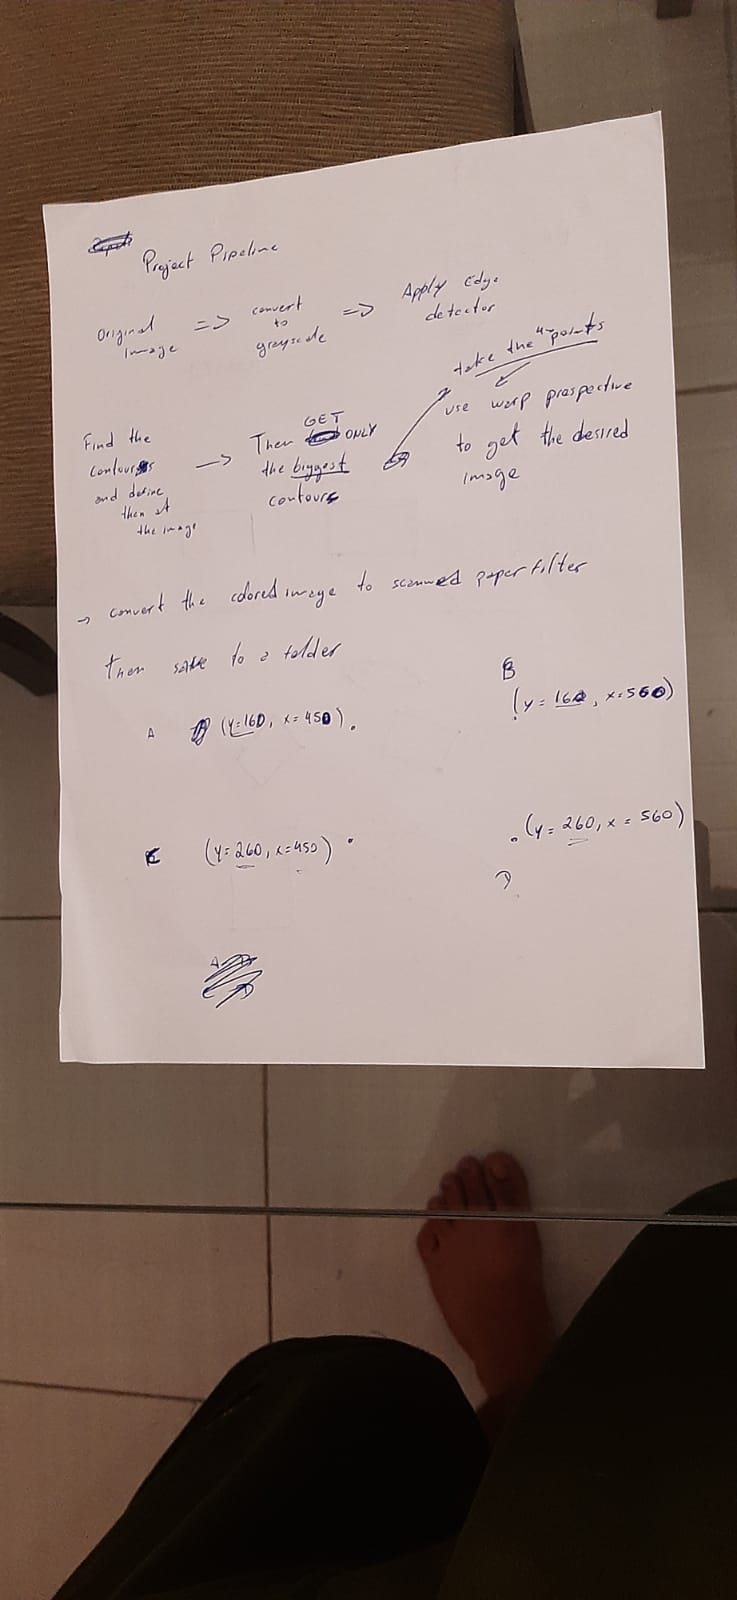 Project Pipeline
Original image => convert to grayscale => Apply Edge detector
Find the contours and define then at the image -> Then GET ONLY the biggest contours
take the 4 points
use warp prespective
to get the desired
image
-> convert the colored image to scanned paper filter
Then save to a folder
A (y=160, x=450).
B
(y=160, x=560)
C (y=260, x=450)
.(y=260, x=560)
D